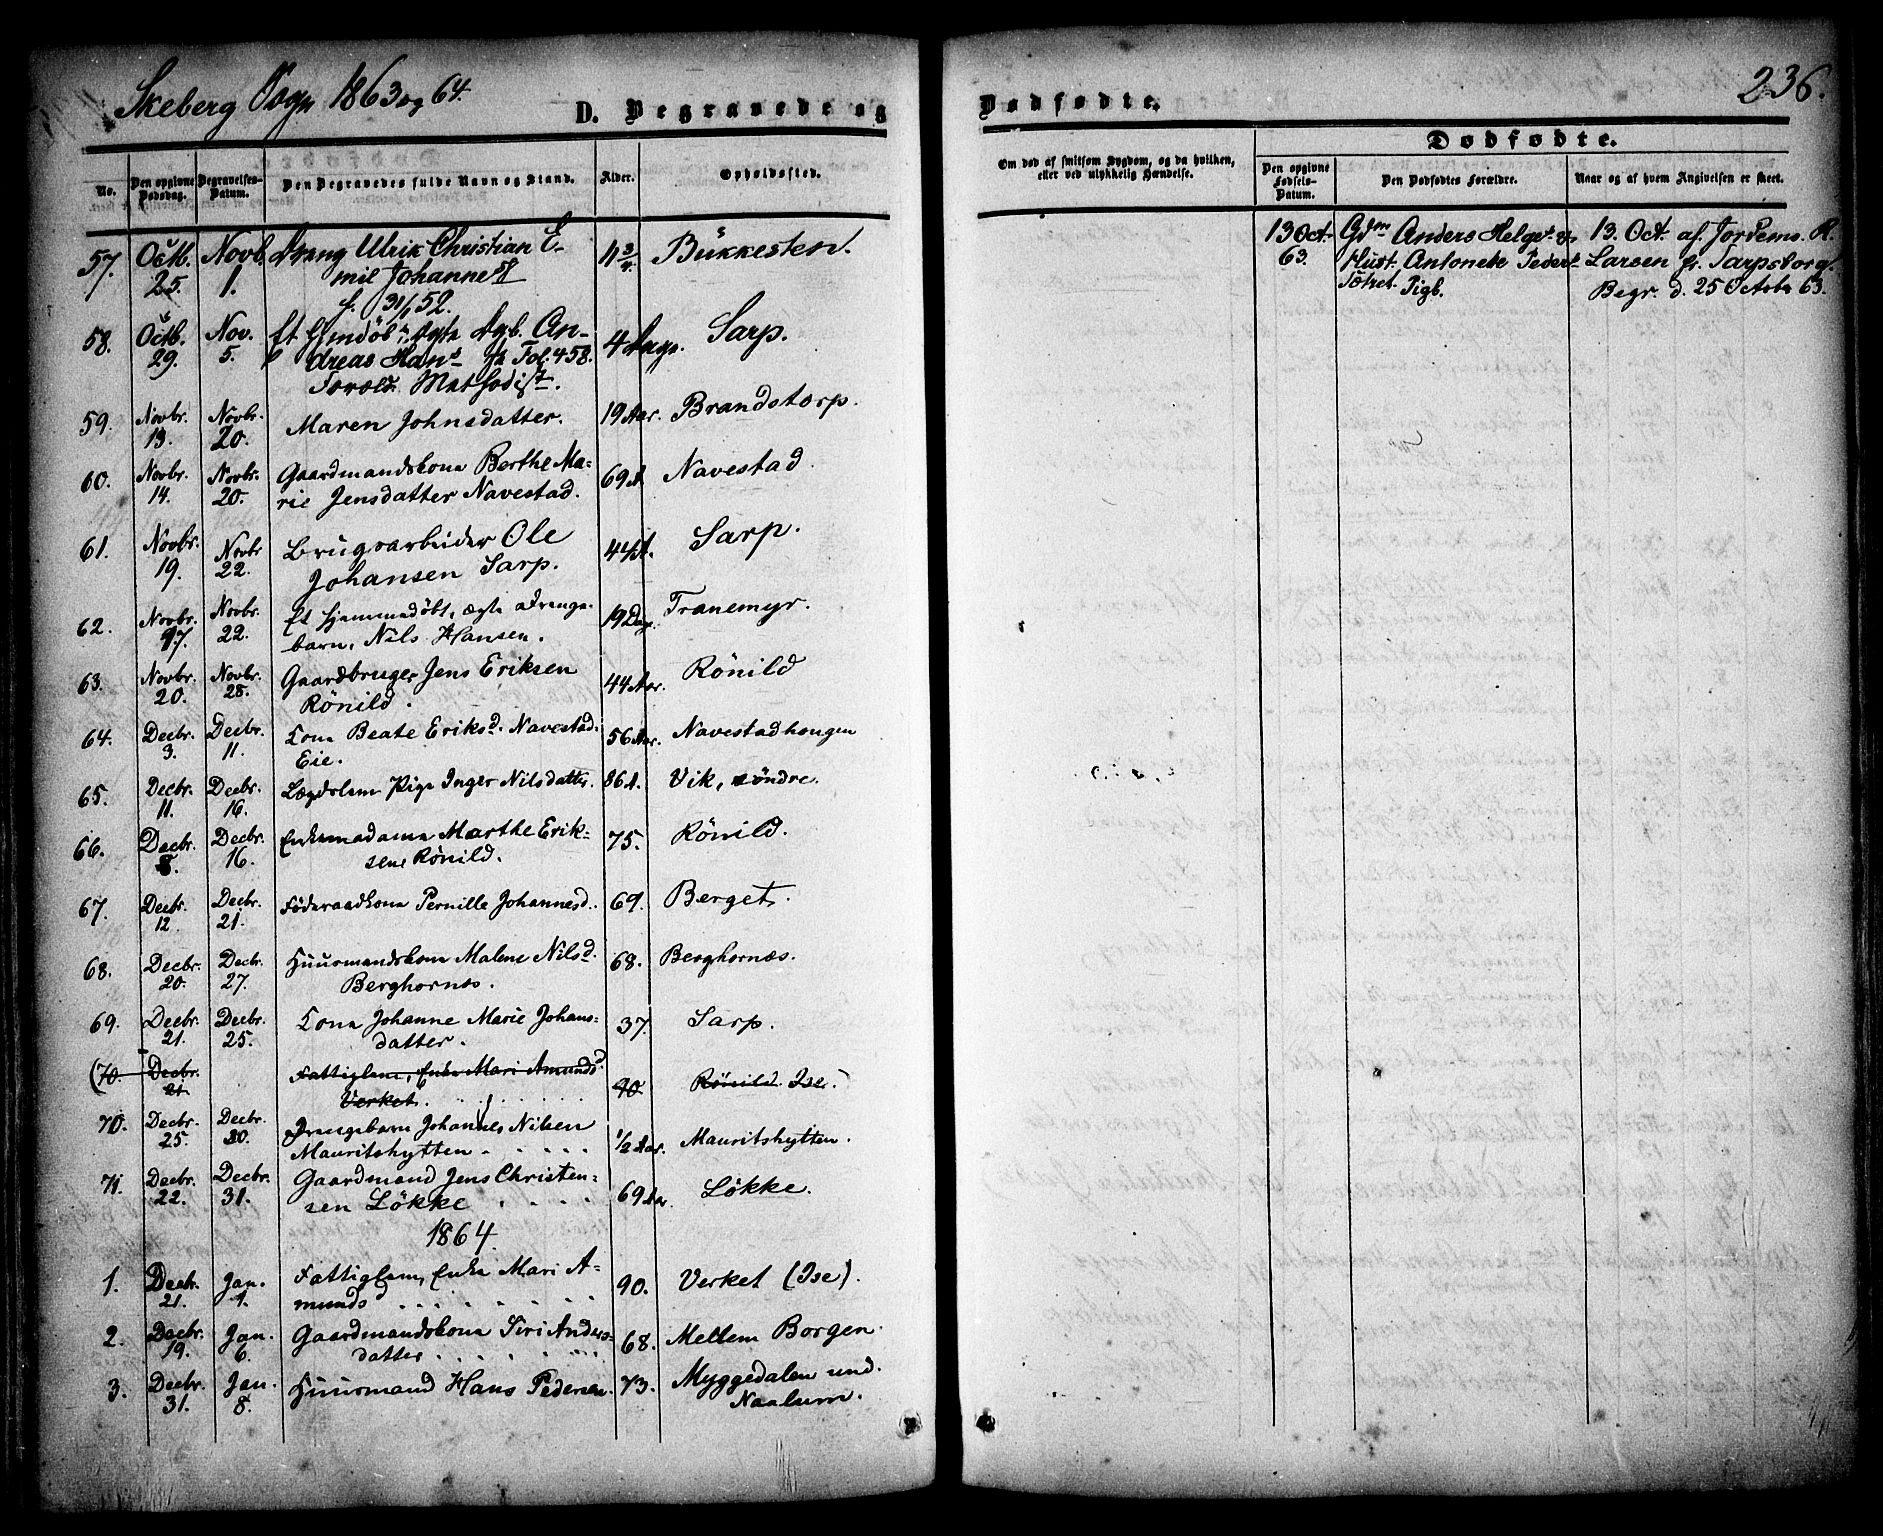 Skeberg Sogn 1863 og 64.
D. Begravede og
Dødfødte.
236.
No.
Den opgivne Dødsdag.
Begravelses-Datum.
Den Begravedes fulde Navn og Stand.
Alder.
Opholdssted.
Om død af smitsom Sygdom, og da hvilken, eller ved ulykkelig Hændelse.
Dødfødte.
Den opgivne Fødsels-Datum.
Den Dødfødtes Forældre.
Naar og af hvem Angivelsen er skeet.
57. Octb. 25. Novb. 1. Dreng Ulrik Christian E-
mil Johannes
f. 31/1 52. 11 3/4 Bükkesten.
58. Octb. 29. Nov. 5. Et Hjmdöbt ægte Dgb. An-
dreas Hans Fol. 458.
Methodist. 4 Dage. Sarp.
59. Novbr. 13. Novbr. 20. Maren Johnsdatter. 19 Aar. Brandstorp.
60. Novbr. 14. Novbr. 20. Gaardmandskona Berthe Ma-
rie Jensdatter Navestad. 69 A. Navestad.
61. Novbr. 19. Novbr 22. Brugsarbeider Ole
Johansen Sarp. 44 A. Sarp.
62. Novbr. 17. Novbr. 22. Et hjemmedöbt, ægte Drenge-
barn, Nils Hansen. 19 Dag. Tranemyr.
63. Novbr. 20. Novbr. 28. Gaardbruger Jens Eriksen
Rönild. 44 Aar. Rönild
64. Decbr. 3. Decbr. 11. Kona Beate Eriksd. Navestad-
Eie. 56 Aar. Navestadhougen
65. Decbr. 11. Decbr. 16. Lægdslem Pige Inger Nilsdatter. 86 A. Vik, söndre.
66. Decbr. 8. Decbr. 16. Enkemadame Marthe Erik-
sen Rönild. 75. Rönild.
67. Decbr. 12. Decbr. 21. Föderaadkona Pernille Johannesd. 69. Berget.
68. Decbr. 20. Decbr. 27. Huusmandskona Malene Nilsd.
Berghornæs. 68. Berghornæs.
69. Decbr. 21. Decbr. 25. Kona Johanne Marie Johans-
datter. 37. Sarp.
(70. Decbr. 21 Fattiglem, Enke Mari Amundsd
Verket. 90 Rönild. Ise.)
70. Decbr. 25. Decbr. 30. Drengebarn Johannes Nilsen
Mauritshytten. 1/2 Aar. Mauritshytten.
71. Decbr. 22. Decbr. 31. Gaardmand Jens Christen-
sen Lökke 69 Aar. Lökke.
1864
1. Decbr. 21. Jan. 1. Fattiglem, Enke Mari A-
mundsd 90. Verket (Ise).
2. Decbr. 19. Jan. 6. Gaardmandskona Siri Anders-
datter 68. Mellem Borgen.
3. Decbr. 31. Jan. 8. Huusmand Hans Pedersen. 73. Myggedalen und.
Naalum.
13 Oct. 63. Gdm Anders Helges. &
Hust. Antonette Peders
Pigb.
13. Oct. af Jordem. R.
Larsen fr. Sarpsborg.
Begr. d. 25 Octbr 63.